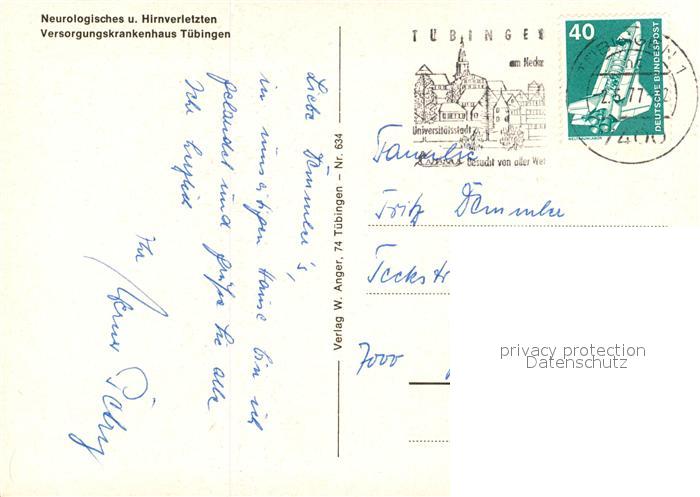 Neurologisches u. Hirnverletzten
Versorgungskrankenhaus Tübingen
Liebe Dömmler's,
in Hause bin ich
gelandet und grüße Sie alle
sehr herzlich
Ihr
Verlag W. Anger, 74 Tübingen – Nr. 634
TÜBINGEN
am Neckar
Universitätsstadt
Besucht von aller Wel
40
DEUTSCHE BUNDESPOST
TÜBINGEN 1
77
7400
Familie
Fritz Dömmler
Teckstr
7000
privacy protection
Datenschutz